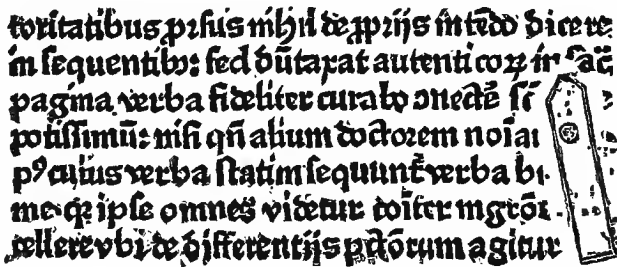 toritatibus p̱rsus nihil de ꝓprijs intēdo dicere
in sequentibꝰ: sed dūtaxat autenticoꝝ in sac̄
pagina verba fideliter curabo ↄnectē
potissimū: nisi qn̄ alium doctorem
pꝰ cuius verba statim sequunt̄ verba
ipse omnes videtur
tellere vbi de differentijs pctōrum agitur